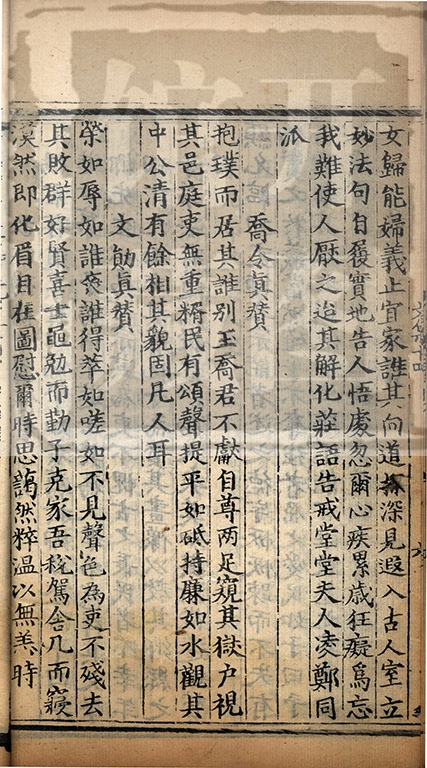 女歸能婦義止宜家誰其向道探深見遐入古人室立
妙法句自履實地告人悟處忽爾心疾累歲狂癡爲忘
我難使人厭之迨其解化莊語告戒堂堂夫人凌鄭同
派
喬令真賛
抱璞而居其誰別玉喬君不獻自尊两足窺其獄户視
其邑庭吏無重糈民有頌聲提平如砥持廉如水觀其
中公清有餘相其貌固凡人耳
文勛真賛
榮如辱如誰喪誰得莘如嗟如不見聲色為吏不殘去
其敗群好賢喜士黽勉而勤子克家吾稅駕舍几而寢
漠然即化眉目在圖慰爾時思藹然粹温以無羔時